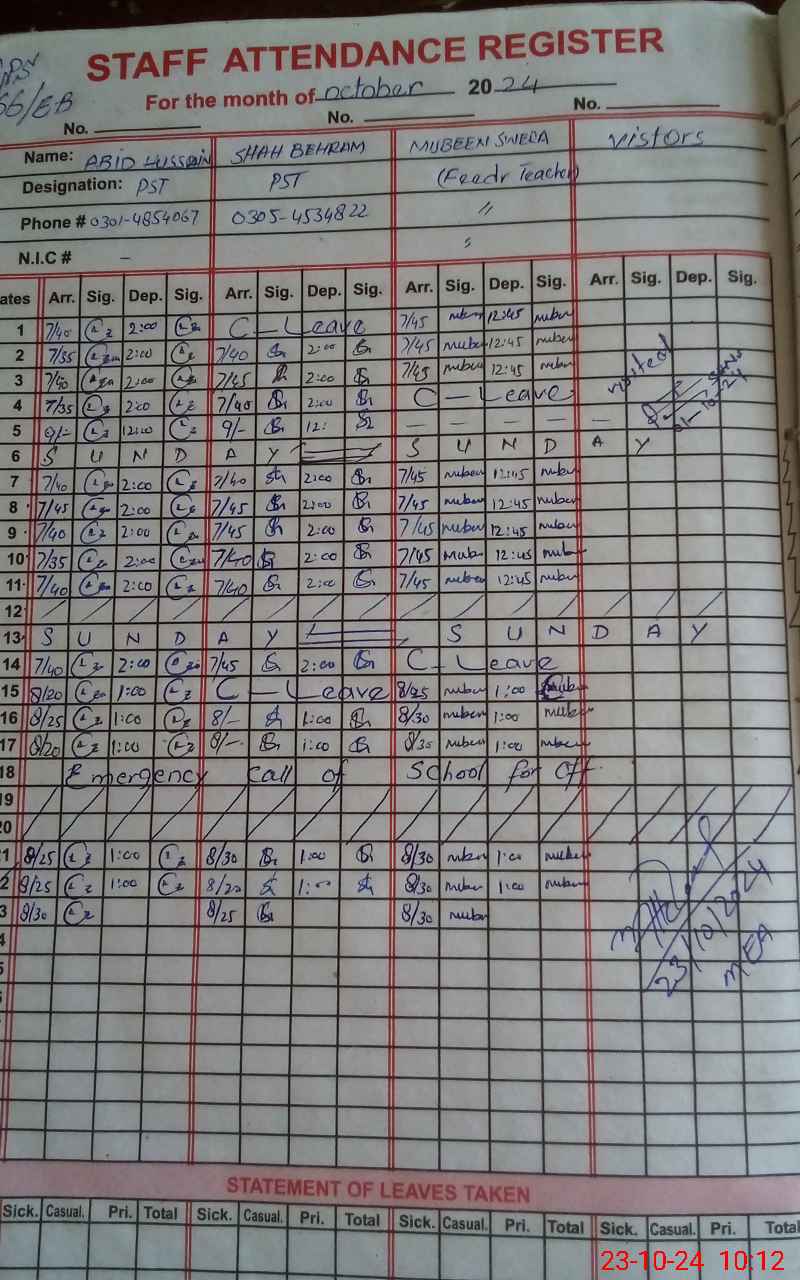 STAFF ATTENDANCE REGISTER
For the month of october 2024
66/EB
No. No. No.
Name: ABID HUSSAIN SHAH BEHRAM MUBEEN SWERA Vistors
Designation: PST PST (Feedr Teacher)
Phone # 0301-4854067 0305-4534822 "
N.I.C # –
ates Arr. Sig. Dep. Sig. Arr. Sig. Dep. Sig. Arr. Sig. Dep. Sig. Arr. Sig. Dep. Sig.
1 7/40 2:00 C-Leave 7/45 muben 12:45 muben
2 7/35 2:00 7/40 2:00 7/45 muben 12:45 muben
3 7/40 2:00 7/45 2:00 7/45 muben 12:45 muben visited
4 7/35 2:00 7/40 2:00 C-Leave 01-10-24
5 9/- 12:00 9/- 12: — — — —
6 S U N D A Y S U N D A Y
7 7/40 2:00 7/40 2:00 7/45 muben 12:45 muben
8 7/45 2:00 7/45 2:00 7/45 muben 12:45 muben
9 7/40 2:00 7/45 2:00 7/45 muben 12:45 muben
10 7/35 2:00 7/40 2:00 7/45 muben 12:45 muben
11 7/40 2:00 7/40 2:00 7/45 muben 12:45 muben
12
13 S U N D A Y S U N D A Y
14 7/40 2:00 7/45 2:00 C-Leave
15 8/20 1:00 C-Leave 8/25 muben 1:00 muben
16 8/25 1:00 8/- 1:00 8/30 muben 1:00 muben
17 8/20 1:00 8/- 1:00 8/30 muben 1:00 muben
18 Emergency call of School for Off.
19
20
1 8/25 1:00 8/30 1:00 8/30 muben 1:00 muben
2 8/25 1:00 8/20 1:00 8/30 muben 1:00 muben
3 8/30 8/25 8/30 muben
23/10/2024
MEA
STATEMENT OF LEAVES TAKEN
Sick. Casual. Pri. Total Sick. Casual. Pri. Total Sick. Casual. Pri. Total Sick. Casual. Pri. Total
23-10-24 10:12